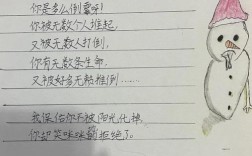 你是多么倒霉呀!
你被无数个人堆起,
又被无数人打倒,
你有无数条生命,
又被好多无数推倒……
我保估你不被阳光化掉,
你却笑咪咪的拒绝了。